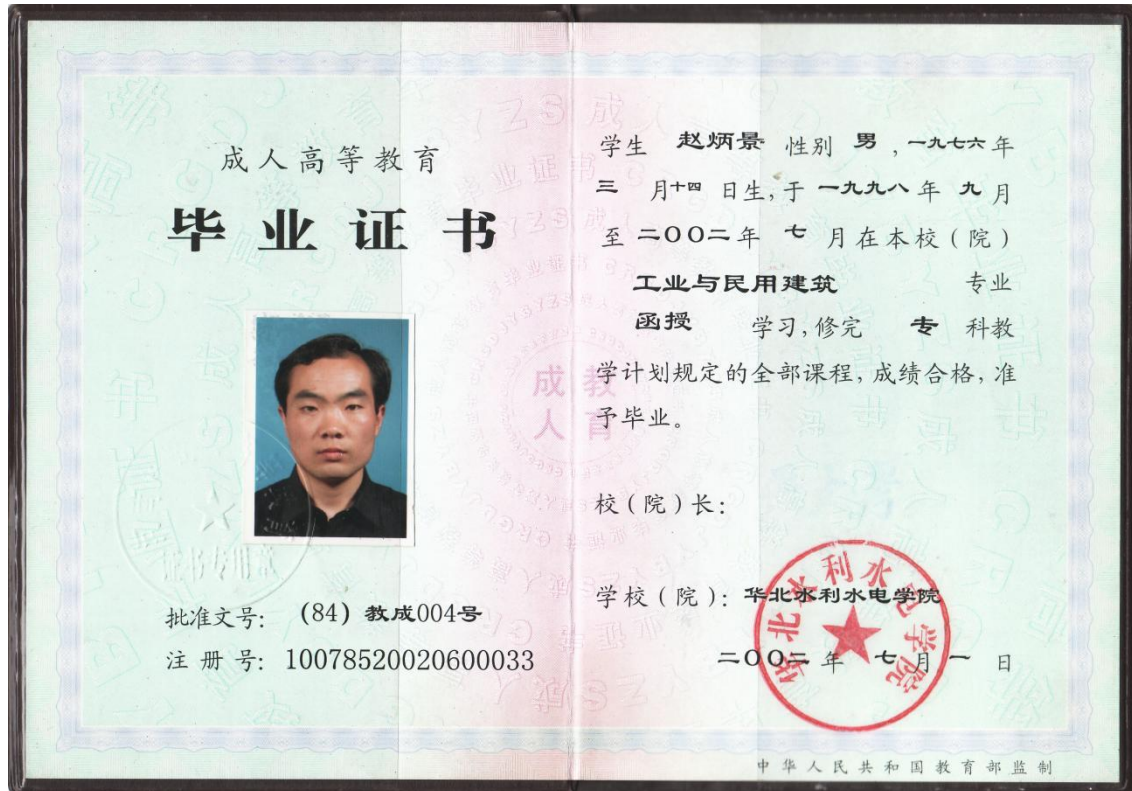 成人高等教育
毕业证书
证书专用章
批准文号: (84) 教成004号
注册号: 10078520020600033
学生 赵炳景 性别 男 ,一九七六年
三 月十四 日生,于 一九九八 年 九 月
至 二〇〇二年 七 月在本校(院)
工业与民用建筑 专业
函授 学习,修完 专 科教
学计划规定的全部课程,成绩合格,准
予毕业。
校(院)长:
学校(院): 华北水利水电学院
华北水利水电学院
二〇〇二 年 七 月 一 日
中华人民共和国教育部监制
成教
人育